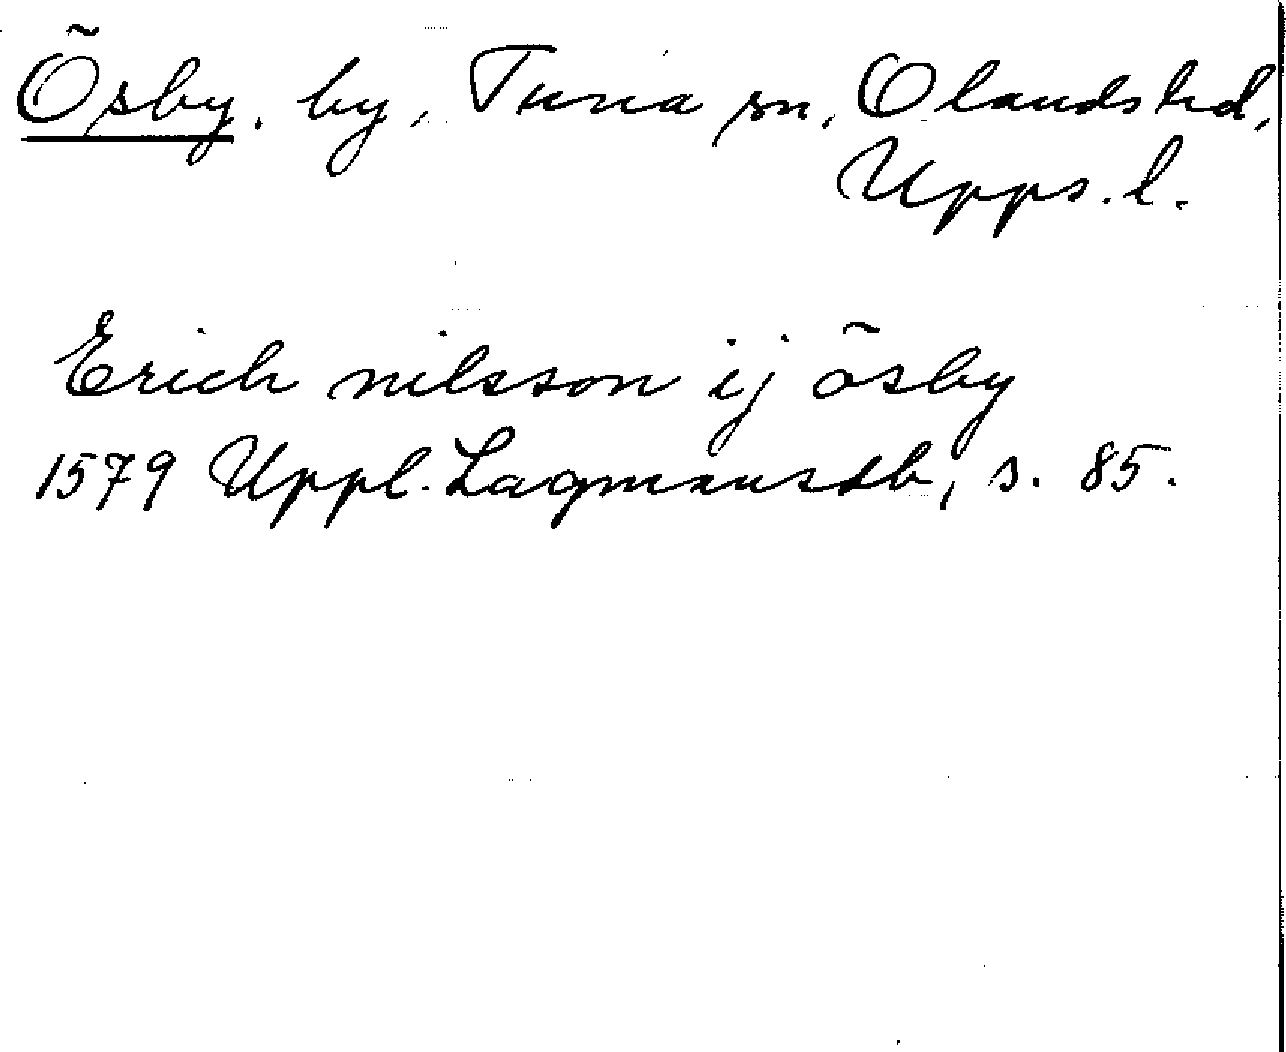 Ösby, by, Tuna sn, Olandshd,
Upps. l.
Erich nilsson ij ösby
1579 Uppl. Lagmansdb, s. 85.